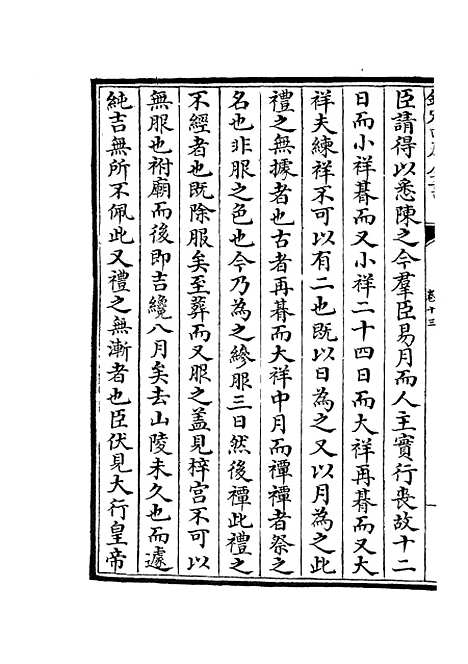 欽定四庫全書
卷十三
臣請得以悉陳之今羣臣易月而人主實行喪故十二
日而小祥朞而又小祥二十四日而大祥再朞而又大
祥夫練祥不可以有二也既以日為之又以月為之此
禮之無據者也古者再朞而大祥中月而禫禫者祭之
名也非服之色也今乃為之縿服三日然後禫此禮之
不經者也既除服矣至葬而又服之蓋見梓宮不可以
無服也祔廟而後即吉纔八月矣去山陵未久也而遽
純吉無所不佩此又禮之無漸者也臣伏見大行皇帝